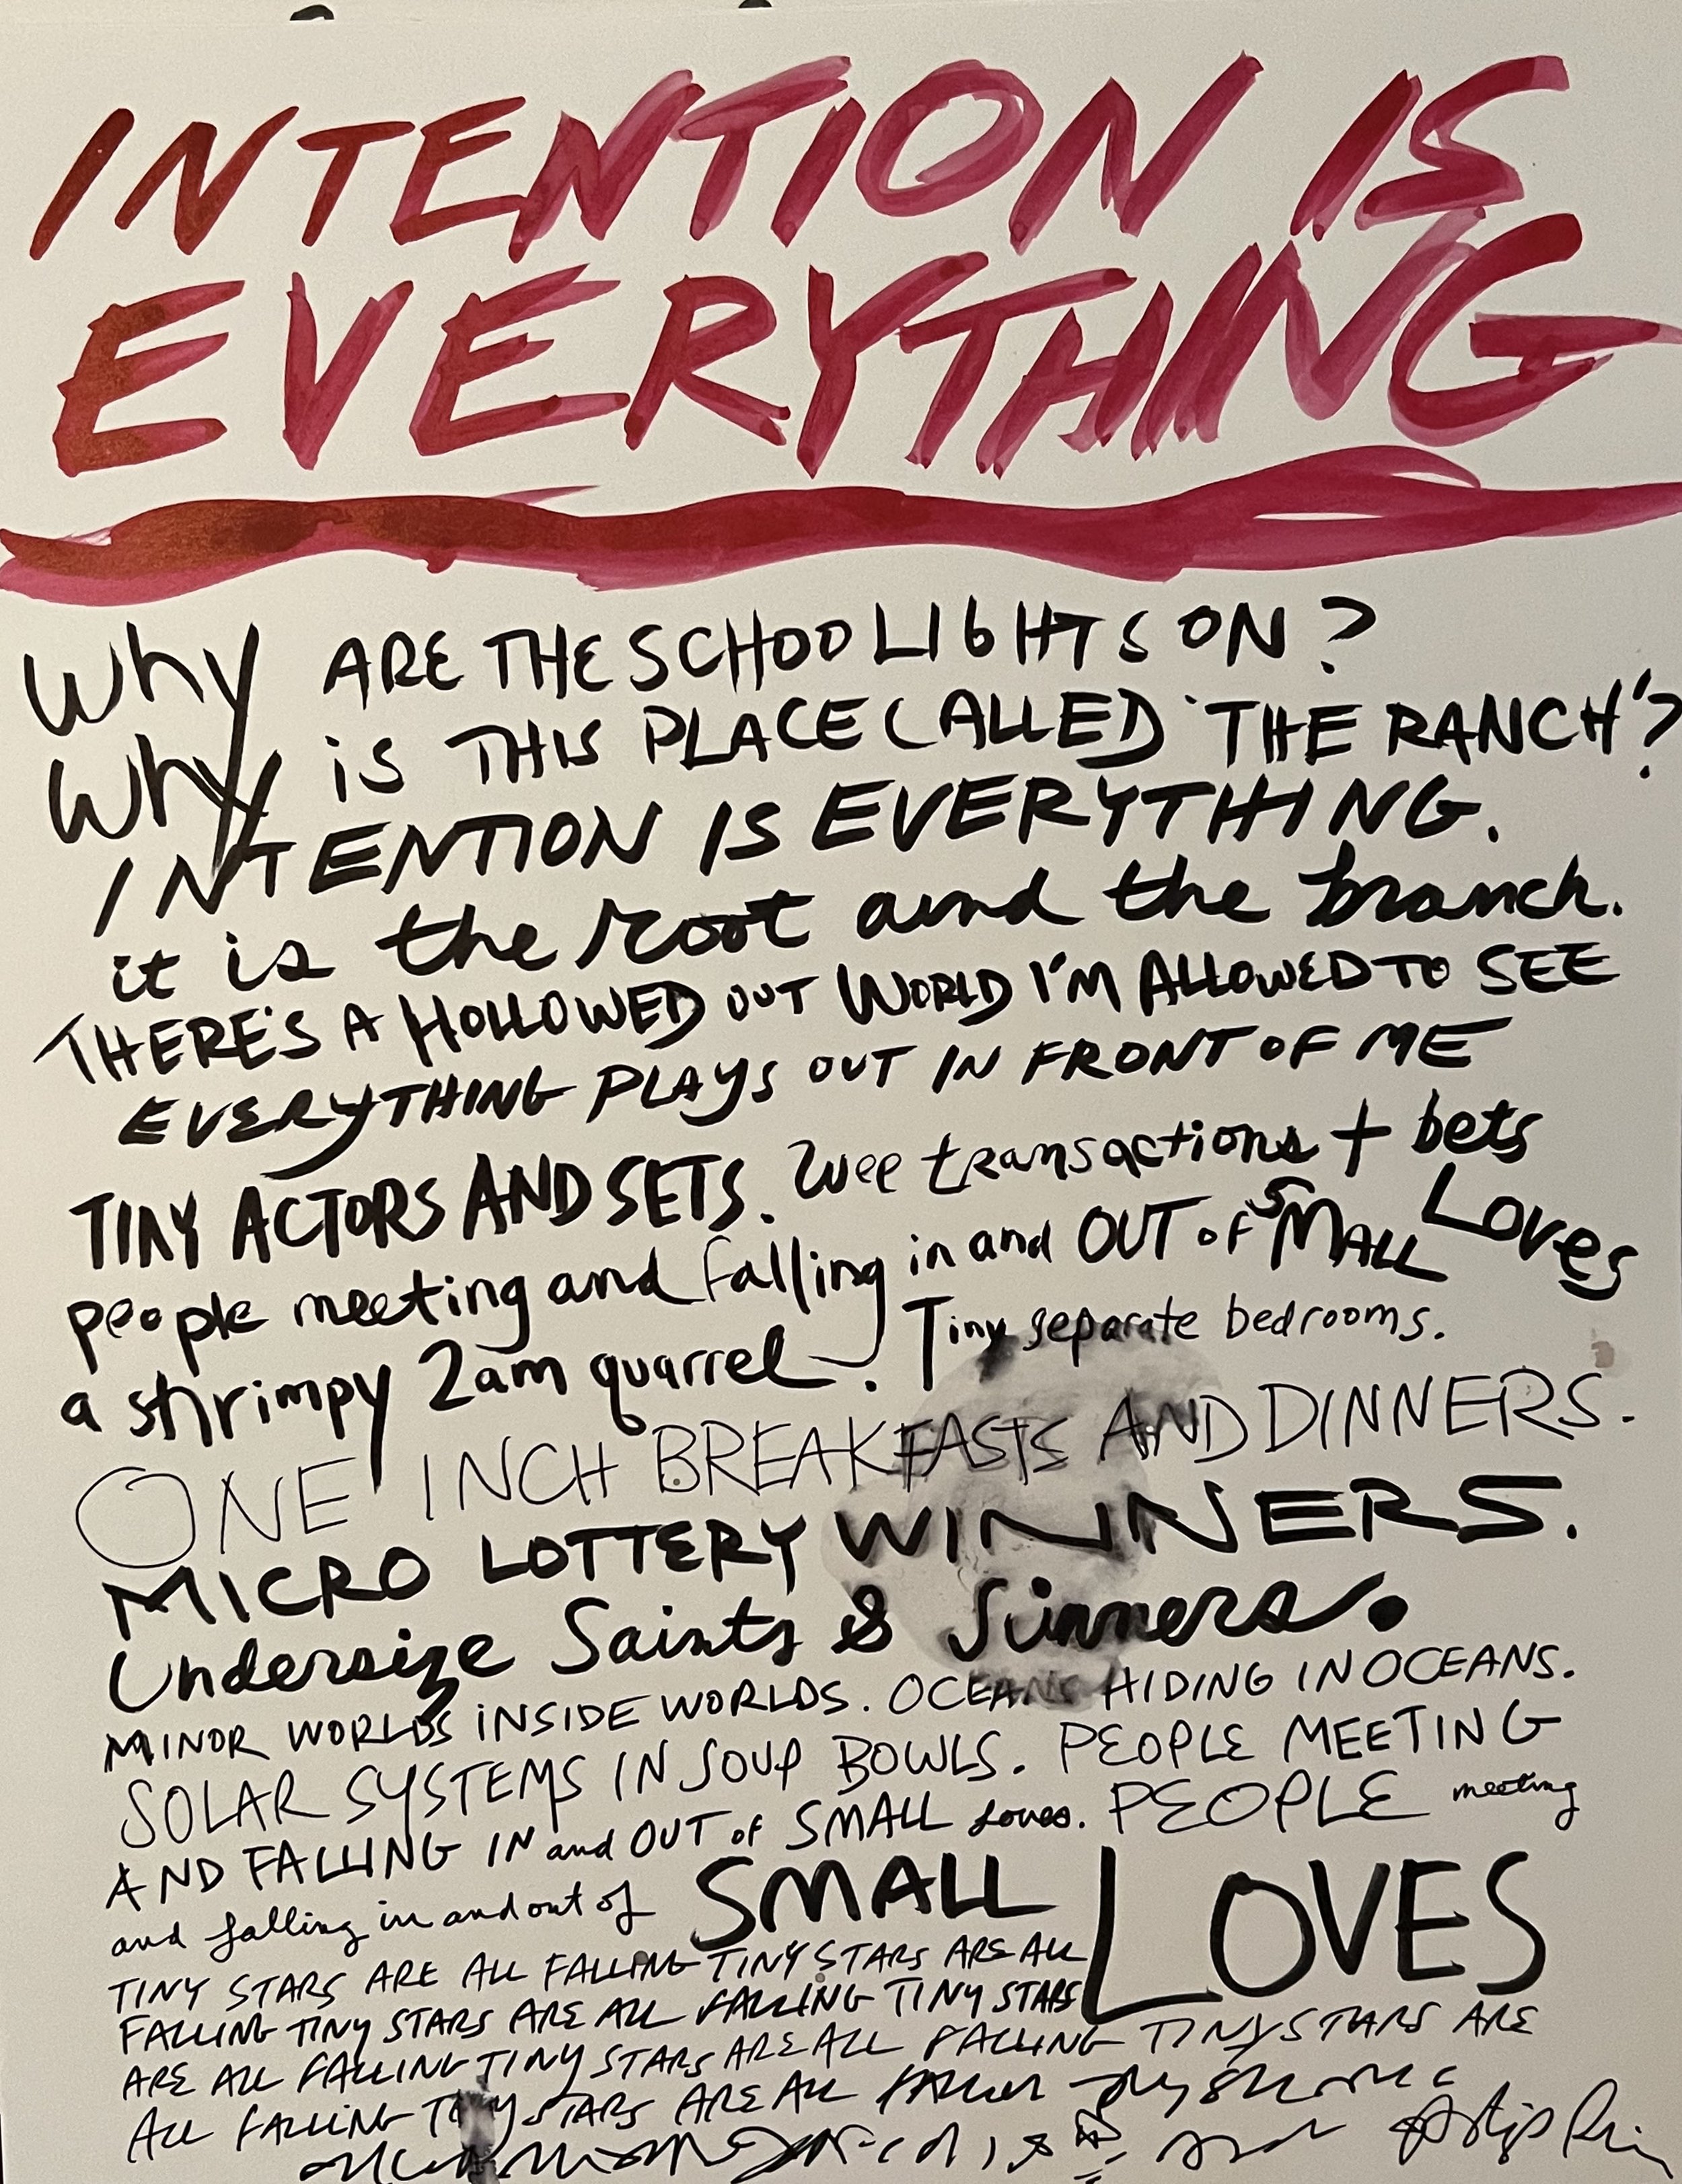 INTENTION IS
EVERYTHING
Why ARE THE SCHOOL LIGHTS ON?
Why IS THIS PLACE CALLED 'THE RANCH'?
INTENTION IS EVERYTHING.
it is the root and the branch.
THERE'S A HOLLOWED OUT WORLD I'M ALLOWED TO SEE
EVERYTHING PLAYS OUT IN FRONT OF ME
TINY ACTORS AND SETS. Wee transactions + bets
people meeting and falling in and OUT OF SMALL Loves
a shrimpy 2am quarrel. Tiny separate bedrooms.
ONE INCH BREAKFASTS AND DINNERS.
MICRO LOTTERY WINNERS.
Undersize Saints & Sinners.
MINOR WORLDS INSIDE WORLDS. OCEANS HIDING IN OCEANS.
SOLAR SYSTEMS IN SOUP BOWLS. PEOPLE MEETING
AND FALLING IN and OUT of SMALL Loves. PEOPLE meeting
and falling in and out of SMALL LOVES
TINY STARS ARE ALL FALLING TINY STARS ARE ALL
FALLING TINY STARS ARE ALL FALLING TINY STARS
ARE ALL FALLING TINY STARS ARE ALL FALLING TINY STARS ARE
ALL FALLING TINY STARS ARE ALL